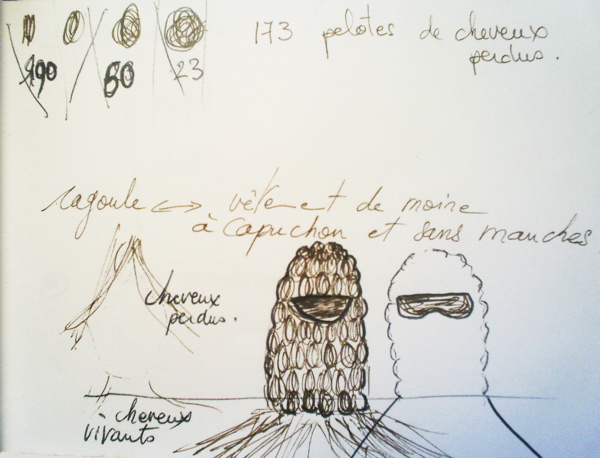 90 60 23
173 pelotes de cheveux
perdus.
cagoule ↔ vêtement de moine
à capuchon et sans manches
cheveux
perdus.
cheveux
vivants